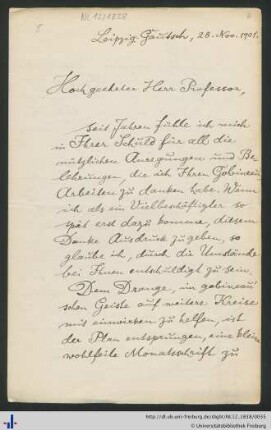 NL 12/1828
Leipzig-Gautzsch, 28. Nov. 1901.
Hochgeehrter Herr Professor,
seit Jahren fühle ich mich
in Ihrer Schuld für all die
nützlichen Anregungen und Be-
lehrungen, die ich Ihren Gobineau-
Arbeiten zu danken habe. Wenn
ich als ein Vielbeschäftigter so
spät erst dazu komme, diesem
Danke Ausdruck zu geben, so
glaube ich, durch die Umstände
bei Ihnen entschuldigt zu sein.
Dem Drange, im gobineau-
schen Geiste auf weitere Kreise
mit einwirken zu helfen, ist
der Plan entsprungen, eine kleine
wohlfeile Monatsschrift zu
http://dl.ub.uni-freiburg.de/diglit/NL12_1818/0035
© Universitätsbibliothek Freiburg